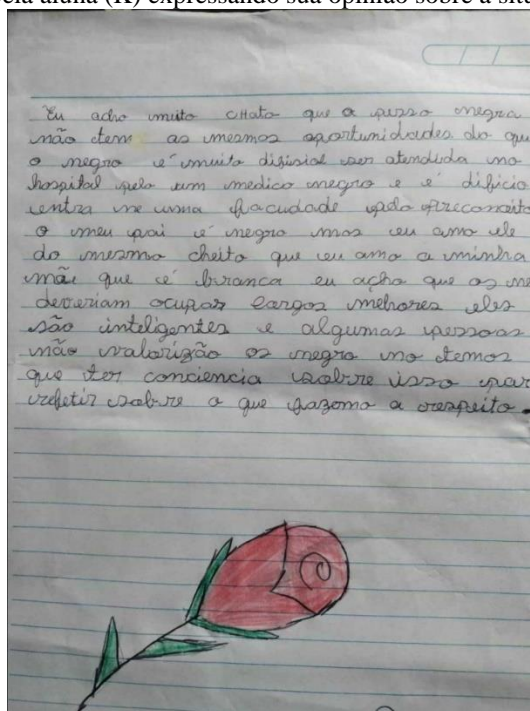 ela aluna (K) expressando sua opinião sobre a situ
Eu acho muito cHato que a pesso negra
não tem as mesmas oportunidades do que
o negro é muito difisial ser atendida no
hospital pelo um medico negro e é dificio
entra ne uma facudade pelo preconceito
o meu pai é negro mas eu amo ele
do mesmo cheito que eu amo a minha
mãe que é branca eu acho que os ne
deveriam ocupar cargos melhores eles
são inteligentes e algumas pessoas
não valorizão os negro no temos
que ter conciencia sobre isso par
refletir sobre o que fazemo a respeito.